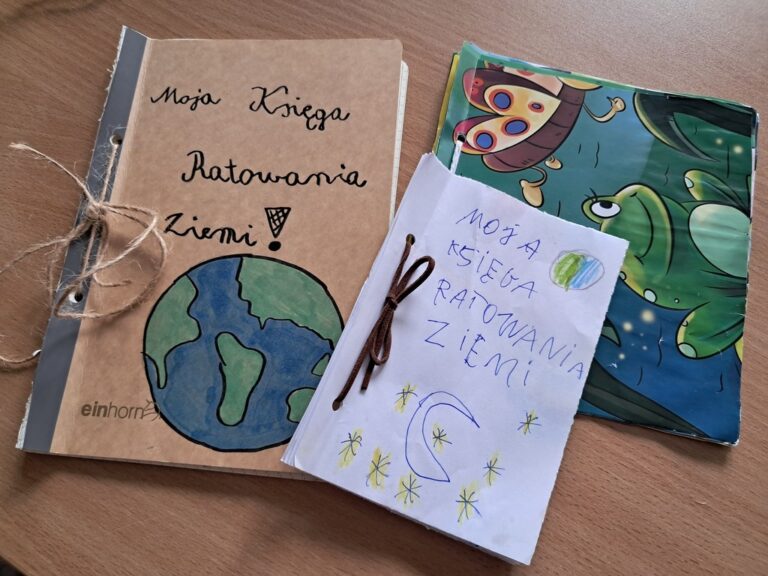 Moja Księga
Ratowania
Ziemi!
einhorn
MOJA
KSIĘGA
RATOWANIA
ZIEMI